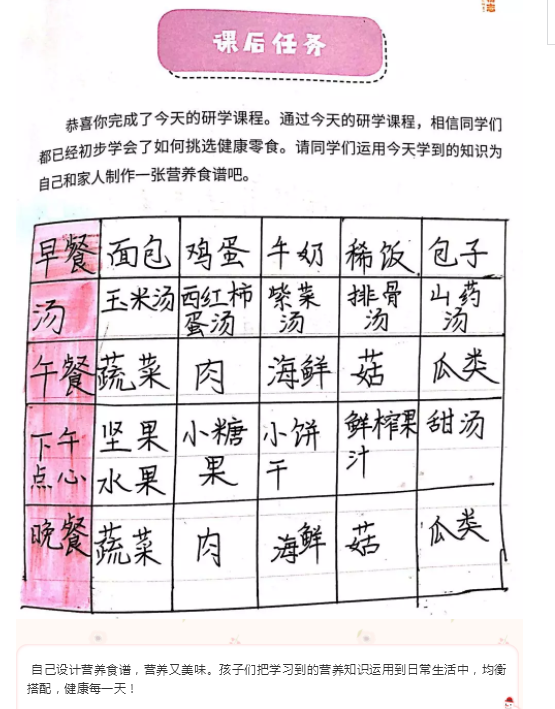 课后任务
恭喜你完成了今天的研学课程。通过今天的研学课程，相信同学们
都已经初步学会了如何挑选健康零食。请同学们运用今天学到的知识为
自己和家人制作一张营养食谱吧。
早餐 面包 鸡蛋 牛奶 稀饭 包子
汤 玉米汤 西红柿 紫菜 排骨 山药
蛋汤 汤 汤 汤
午餐 蔬菜 肉 海鲜 菇 瓜类
下午 坚果 小糖 小饼 鲜榨果 甜汤
点心 水果 果 干 汁
晚餐 蔬菜 肉 海鲜 菇 瓜类
自己设计营养食谱，营养又美味。孩子们把学习到的营养知识运用到日常生活中，均衡
搭配，健康每一天！